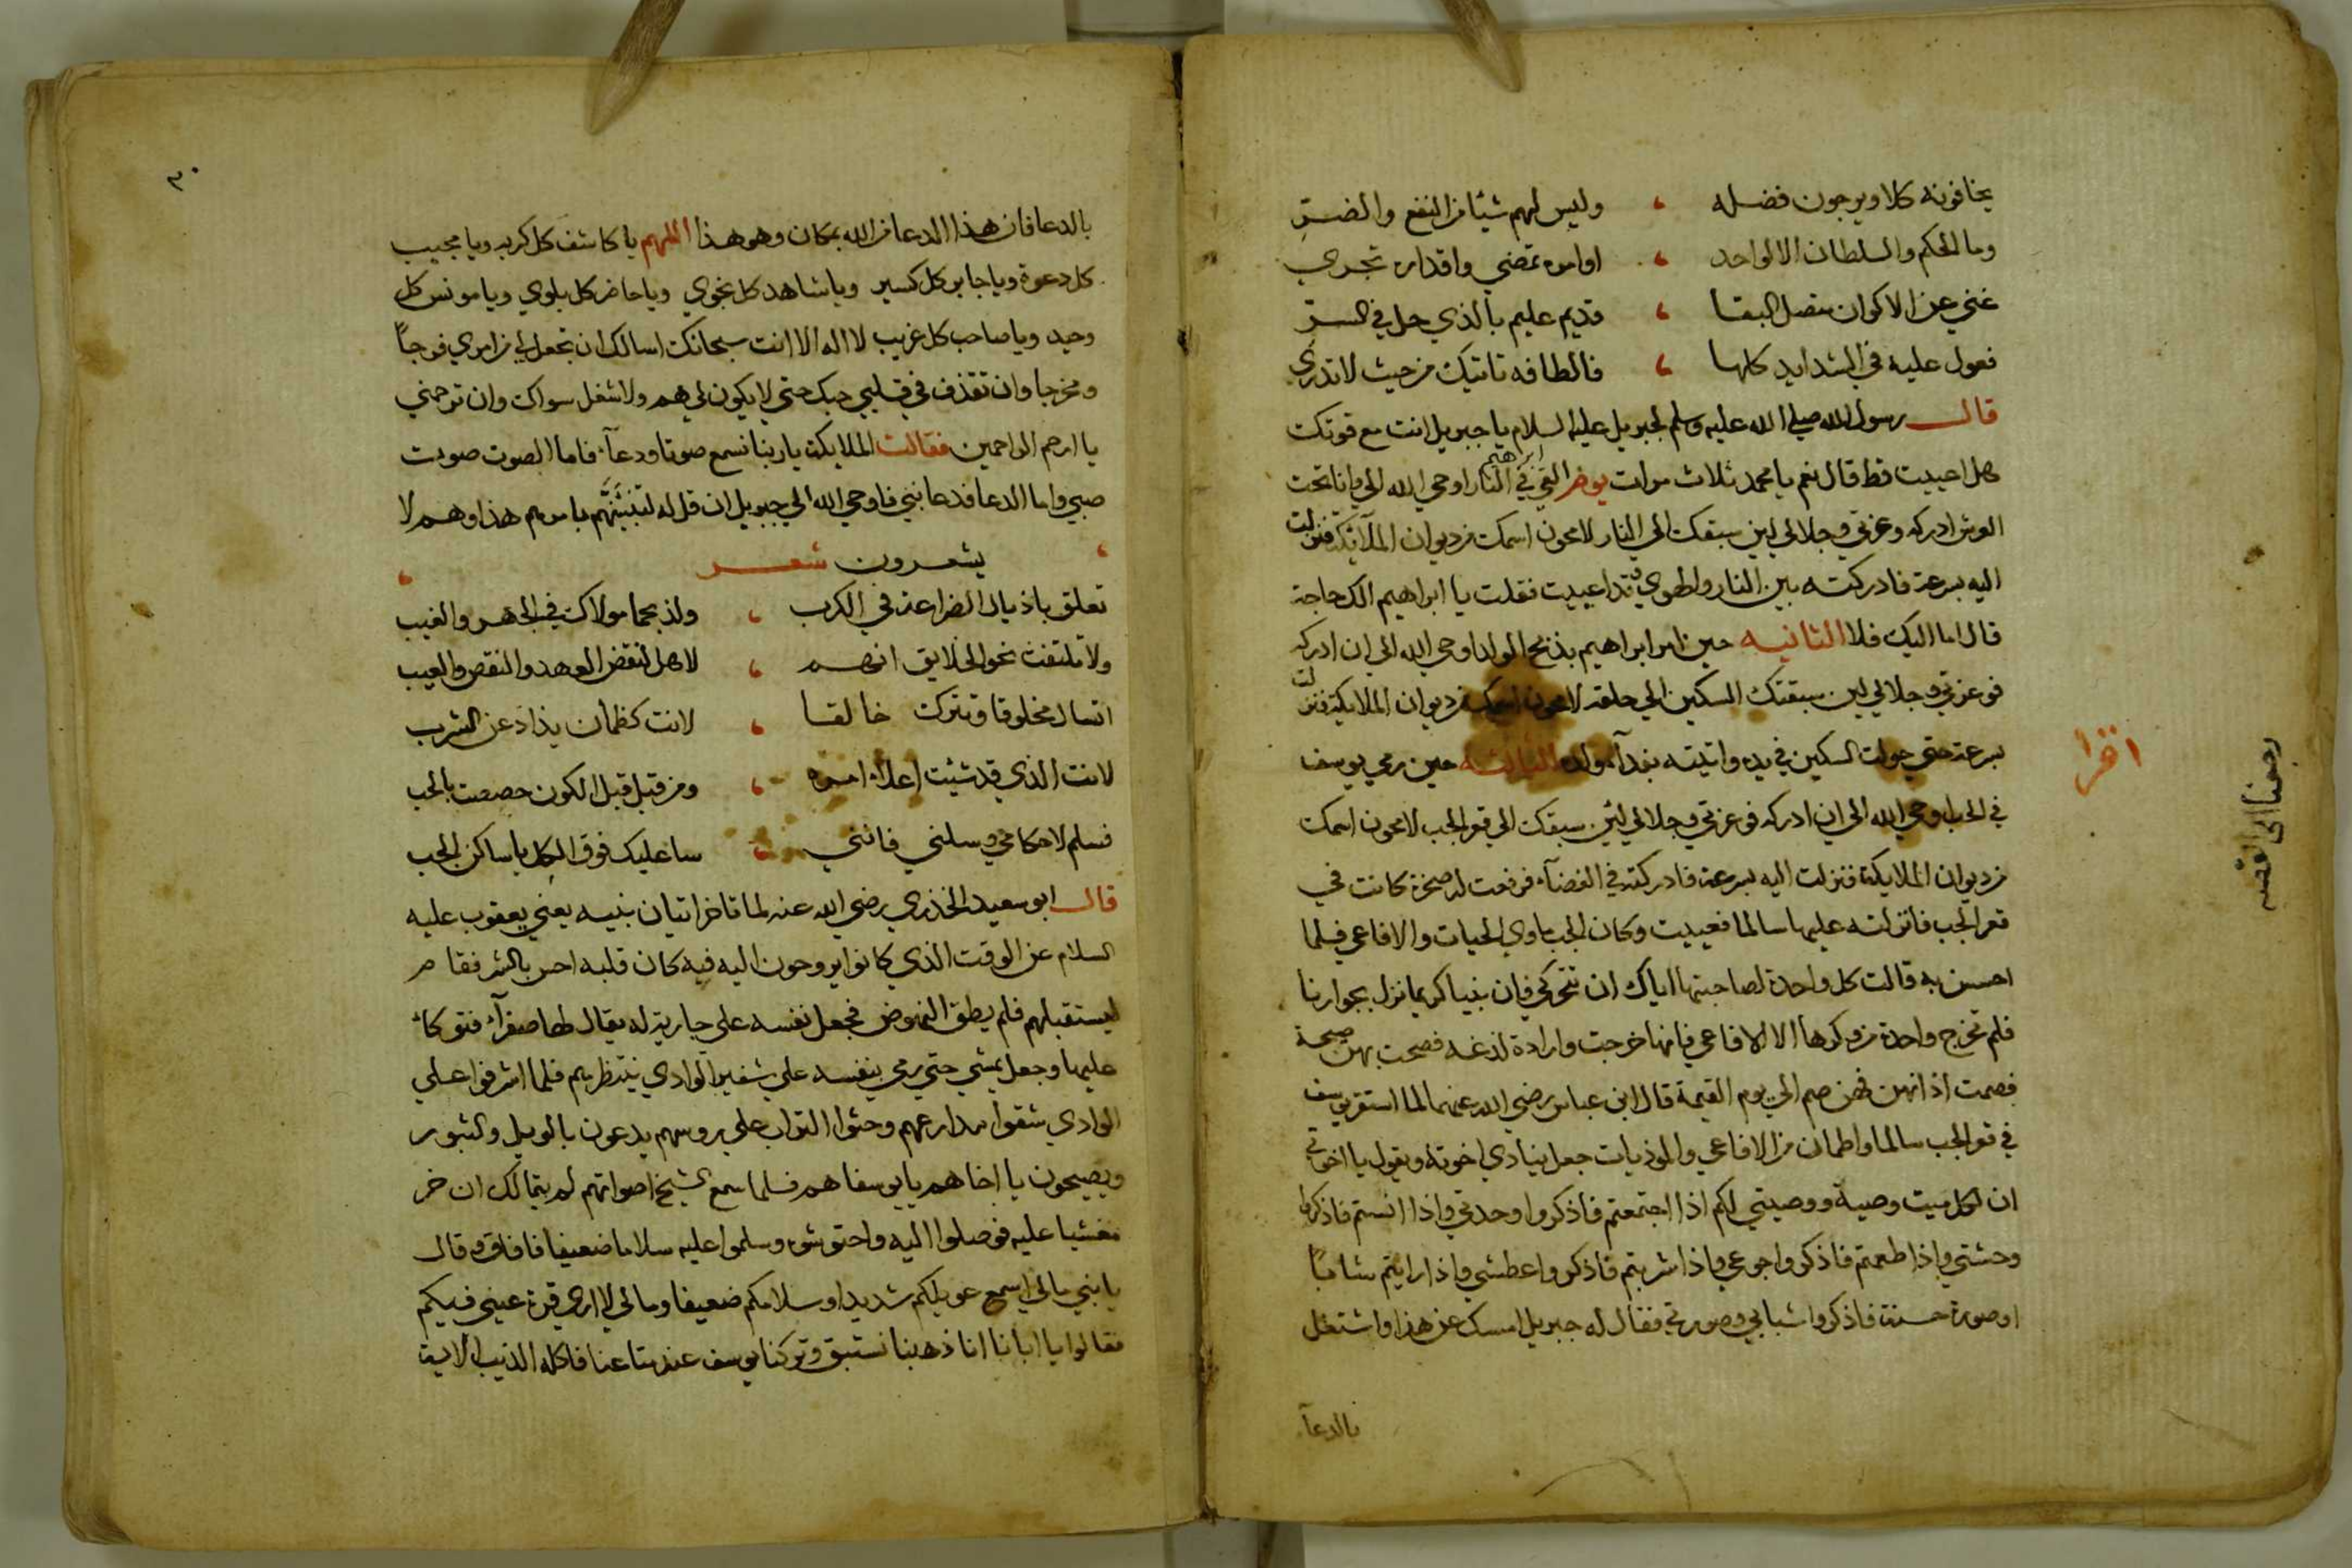 يخافونه كلا ويرجون فضله ، وليس لهم شيئا من النفع والضر
وما الحكم والسلطان الا لواحد ، اوامره تمضي واقداره تجري
غني عن الاكوان متصل البقا ، قديم عليم بالذي حل في السر
فعول عليه في الشدايد كلها ، فالطافه تاتيك من حيث لا تدري
قال رسول الله صلي الله عليه وسلم لجبريل عليه السلام يا جبريل انت مع قوتك
هل اعييت قط قال نعم يا محمد ثلاث مرات يوم القي ابراهيم في النار اوحي الله الي وانا تحت
العرش ادركه وعزتي وجلالي لين سبقتك الي النار لامحون اسمك من ديوان الملآئكة فنزلت
اليه بسرعة فادركته بين النار والهوي وقد اعييت فقلت يا ابراهيم الك حاجة
قال اما اليك فلا الثانيه حين امر ابراهيم بذبح الولد اوحي الله الي ان ادركه
فوعزتي وجلالي لين سبقتك السكين الي حلقه لامحون اسمك من ديوان الملايكة فنزلت
بسرعة حتي حولت السكين في يده واتيته بفدآء ولده الثالثه حين رمي يوسف
في الجب اوحي الله الي ان ادركه فوعزتي وجلالي لئن سبقتك الي قعر الجب لامحون اسمك
من ديوان الملايكة فنزلت اليه بسرعة فادركته في الفضآء فرفعت له صخرة كانت في
قعر الجب فانزلته عليها سالما فعييت وكان الجب ماوي الحيات والافاعي فلما
احسن به قالت كل واحدة لصاحبتها اياك ان تتحركي فان نبيا كريما نزل بجوارنا
فلم تخرج واحدة من وكرها الا الافاعي فانها خرجت وارادة لدغه فصحت بهن صيحة
فصمت اذانهن فهن صم الي يوم القيمة قال ابن عباس رضي الله عنهما لما استقر يوسف
في قعر الجب سالما واطمان من الافاعي والموذيات جعل ينادي اخوته ويقول يا اخوتي
ان لكل ميت وصية ووصيتي لكم اذا اجتمعتم فاذكروا وحدتي واذا انستم فاذكروا
وحشتي واذا طعمتم فاذكروا جوعي واذا شربتم فاذكروا عطشي واذا رايتم شابا
او صورة حسنة فاذكروا شبابي وصورتي فقال له جبريل امسك عن هذا واشتغل
بالدعآ
اقرا
رجعنا الي القصه
٣٠
بالدعا فان هذا الدعا من الله بمكان وهو هذا اللهم يا كاشف كل كربه ويا مجيب
كل دعوة ويا جابر كل كسير ويا شاهد كل نجوي ويا حاضر كل بلوي ويا مونس كل
وحيد ويا صاحب كل غريب لا اله الا انت سبحانك اسالك ان تجعل لي من امري فرجاً
ومخرجا وان تقذف في قلبي حبك حتي لا يكون لي هم ولا شغل سواك وان ترحمني
يا ارحم الراحمين فقالت الملايكة يا ربنا نسمع صوتا ودعآء فاما الصوت صوت
صبي واما الدعا فدعا نبي فاوحي الله الي جبريل ان قل له لتنبئنَّهم بامرهم هذا وهم لا
يشعرون شعر
تعلق باذيال الضراعة في الكرب ، ولذ بحما مولاك في الجهر والغيب
ولا تلتفت نحو الخلايق انهم ، لاهل لنقض العهد والنقص والعيب
اتسال مخلوقا وتترك خالقا ، لانت كظمان يذاد عن الشرب
لانت الذي قد شئت اعلاء امره ، ومن قبل قبل الكون خصصت بالحب
فسلم لاحكامي وسلني فانني ، ساعليك فوق الكل يا ساكن الجب
قال ابو سعيد الخذري رضي الله عنه لما تاخر اتيان بنيه يعني يعقوب عليه
السلام عن الوقت الذي كانوا يروحون اليه فيه كان قلبه احس بالشر فقام
ليستقبلهم فلم يطق النهوض فجعل نفسه علي جارية له يقال لها صفرآء فتوكاء
عليها وجعل يمشي حتي رمي بنفسه علي شفير الوادي ينتظرهم فلما اشرفوا علي
الوادي شقوا مدارعهم وحثوا التراب علي روسهم يدعون بالويل والثبور
ويصيحون يا اخاهم يا يوسفاهم فلما سمع الشيخ اصواتهم لم يتمالك ان خر
مغشيا عليه فوصلوا اليه واحتوشوه وسلموا عليه سلاما ضعيفا فافاق وقال
يا بني مالي اسمع عويلكم شديدا وسلامكم ضعيفا ومالي لا اري قرة عيني فيكم
فقالوا يا ابانا انا ذهبنا نستبق وتركنا يوسف عند متاعنا فاكله الذيب الاية